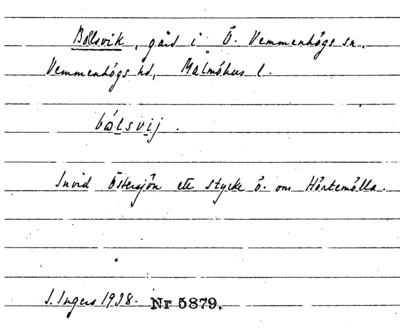 Bollsvik, gård i Ö. Vemmenhögs sn.
Vemmenhögs hd, Malmöhus l.
bålsvij.
Invid Östersjön ett stycke ö. om Hörtemölla.
I. Ingers 1938. Nr 5879.